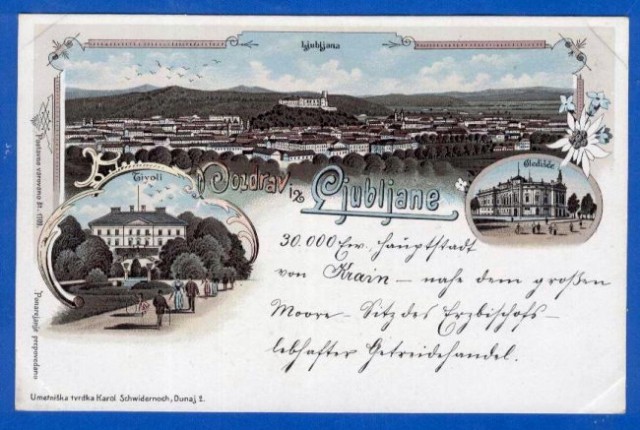 Ljubljana
Tivoli
Pozdrav iz Ljubljane
30.000 Ew. Hauptstadt
von Krain – nahe dem großen
Moore – Sitz des Erzbischofs –
lebhafter Getreidehandel.
Ponarejanje prepovedano
Umetniška tvrdka Karol Schwidernoch, Dunaj 2.